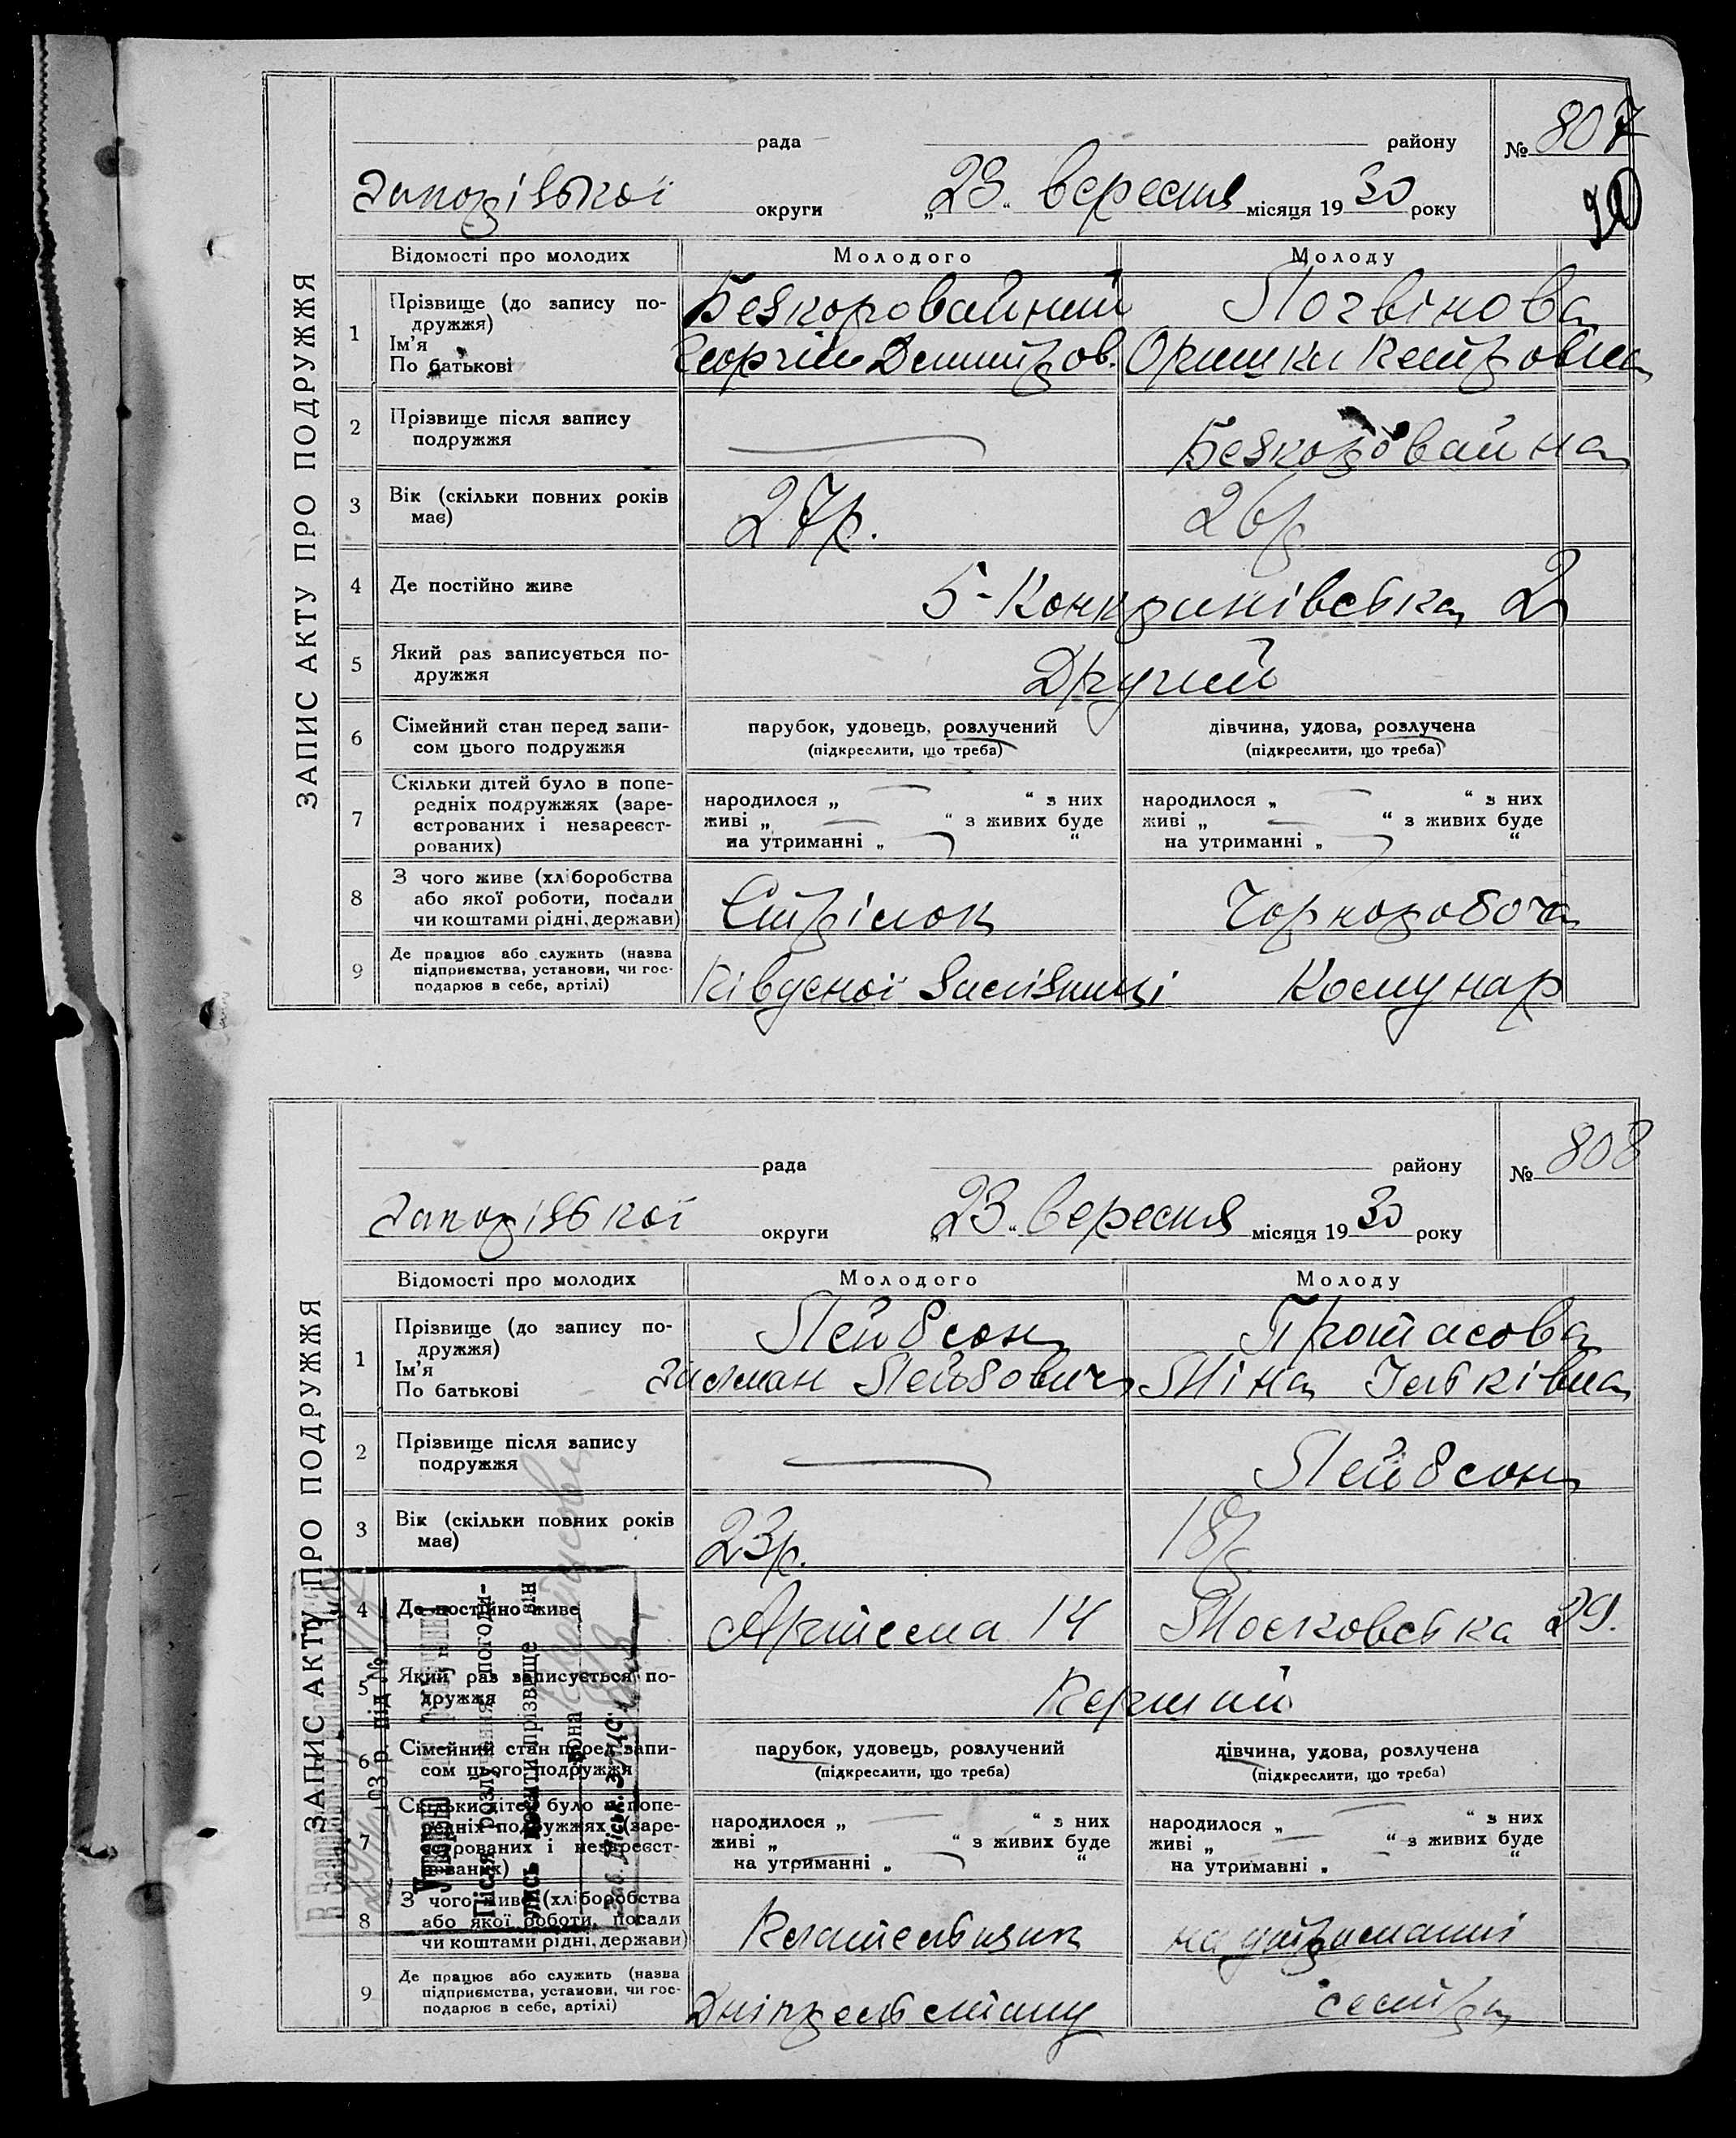 ЗАПИС АКТУ ПРО ПОДРУЖЖЯ
рада району № 807
Запорізької округи „23“ вересня місяця 1930 року
Відомості про молодих Молодого Молоду
1 Прізвище (до запису по- Безкоровайний Логвінова
дружжя)
Ім'я
По батькові Георгій Дмитров. Оришка Петровна
2 Прізвище після запису
подружжя — Безкоровайна
3 Вік (скільки повних років
має) 27р. 26р
4 Де постійно живе 5-Кониринівська 2
5 Який раз записується по-
дружжя Другий
6 Сімейний стан перед запи- парубок, удовець, розлучений дівчина, удова, розлучена
сом цього подружжя (підкреслити, що треба) (підкреслити, що треба)
7 Скільки дітей було в попе-
редніх подружжях (заре- народилося „ — “ з них народилося „ — “ з них
єстрованих і незареєст- живі „ — “ з живих буде живі „ — “ з живих буде
рованих) на утриманні „ “ на утриманні „ “
8 З чого живе (хліборобства
або якої роботи, посади Стрілок Чорноробоча
чи коштами рідні, держави)
9 Де працює або служить (назва
підприємства, установи, чи гос- Південої Залізниці Комунар
подарює в себе, артілі)
ЗАПИС АКТУ ПРО ПОДРУЖЖЯ
рада району № 808
Запорізької округи „23“ вересня місяця 1930 року
Відомості про молодих Молодого Молоду
1 Прізвище (до запису по- Лейбсон Протасова
дружжя)
Ім'я
По батькові Зисман Лейбович Міна Ільківна
2 Прізвище після запису
подружжя — Лейбсон
3 Вік (скільки повних років
має) 23р. 18р
4 Де постійно живе Артема 14 Московська 29.
5 Який раз записується по-
дружжя Перший
6 Сімейний стан перед запи- парубок, удовець, розлучений дівчина, удова, розлучена
сом цього подружжя (підкреслити, що треба) (підкреслити, що треба)
7 Скільки дітей було в попе-
редніх подружжях (заре- народилося „ — “ з них народилося „ — “ з них
єстрованих і незареєст- живі „ “ з живих буде живі „ — “ з живих буде
рованих) на утриманні „ “ на утриманні „ “
8 З чого живе (хліборобства
або якої роботи, посади Плательщик на утриманні
чи коштами рідні, держави)
9 Де працює або служить (назва
підприємства, установи, чи гос- Дніпрельстану сестри
подарює в себе, артілі)
193 р. під №
Після розлучення погоди-
лись носити прізвище він
вона